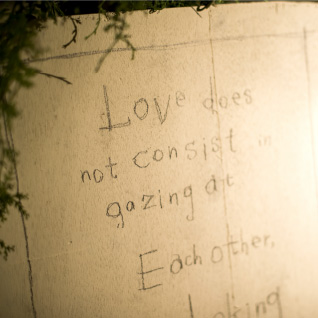 Love does
not consist in
gazing at
Each other,
Looking